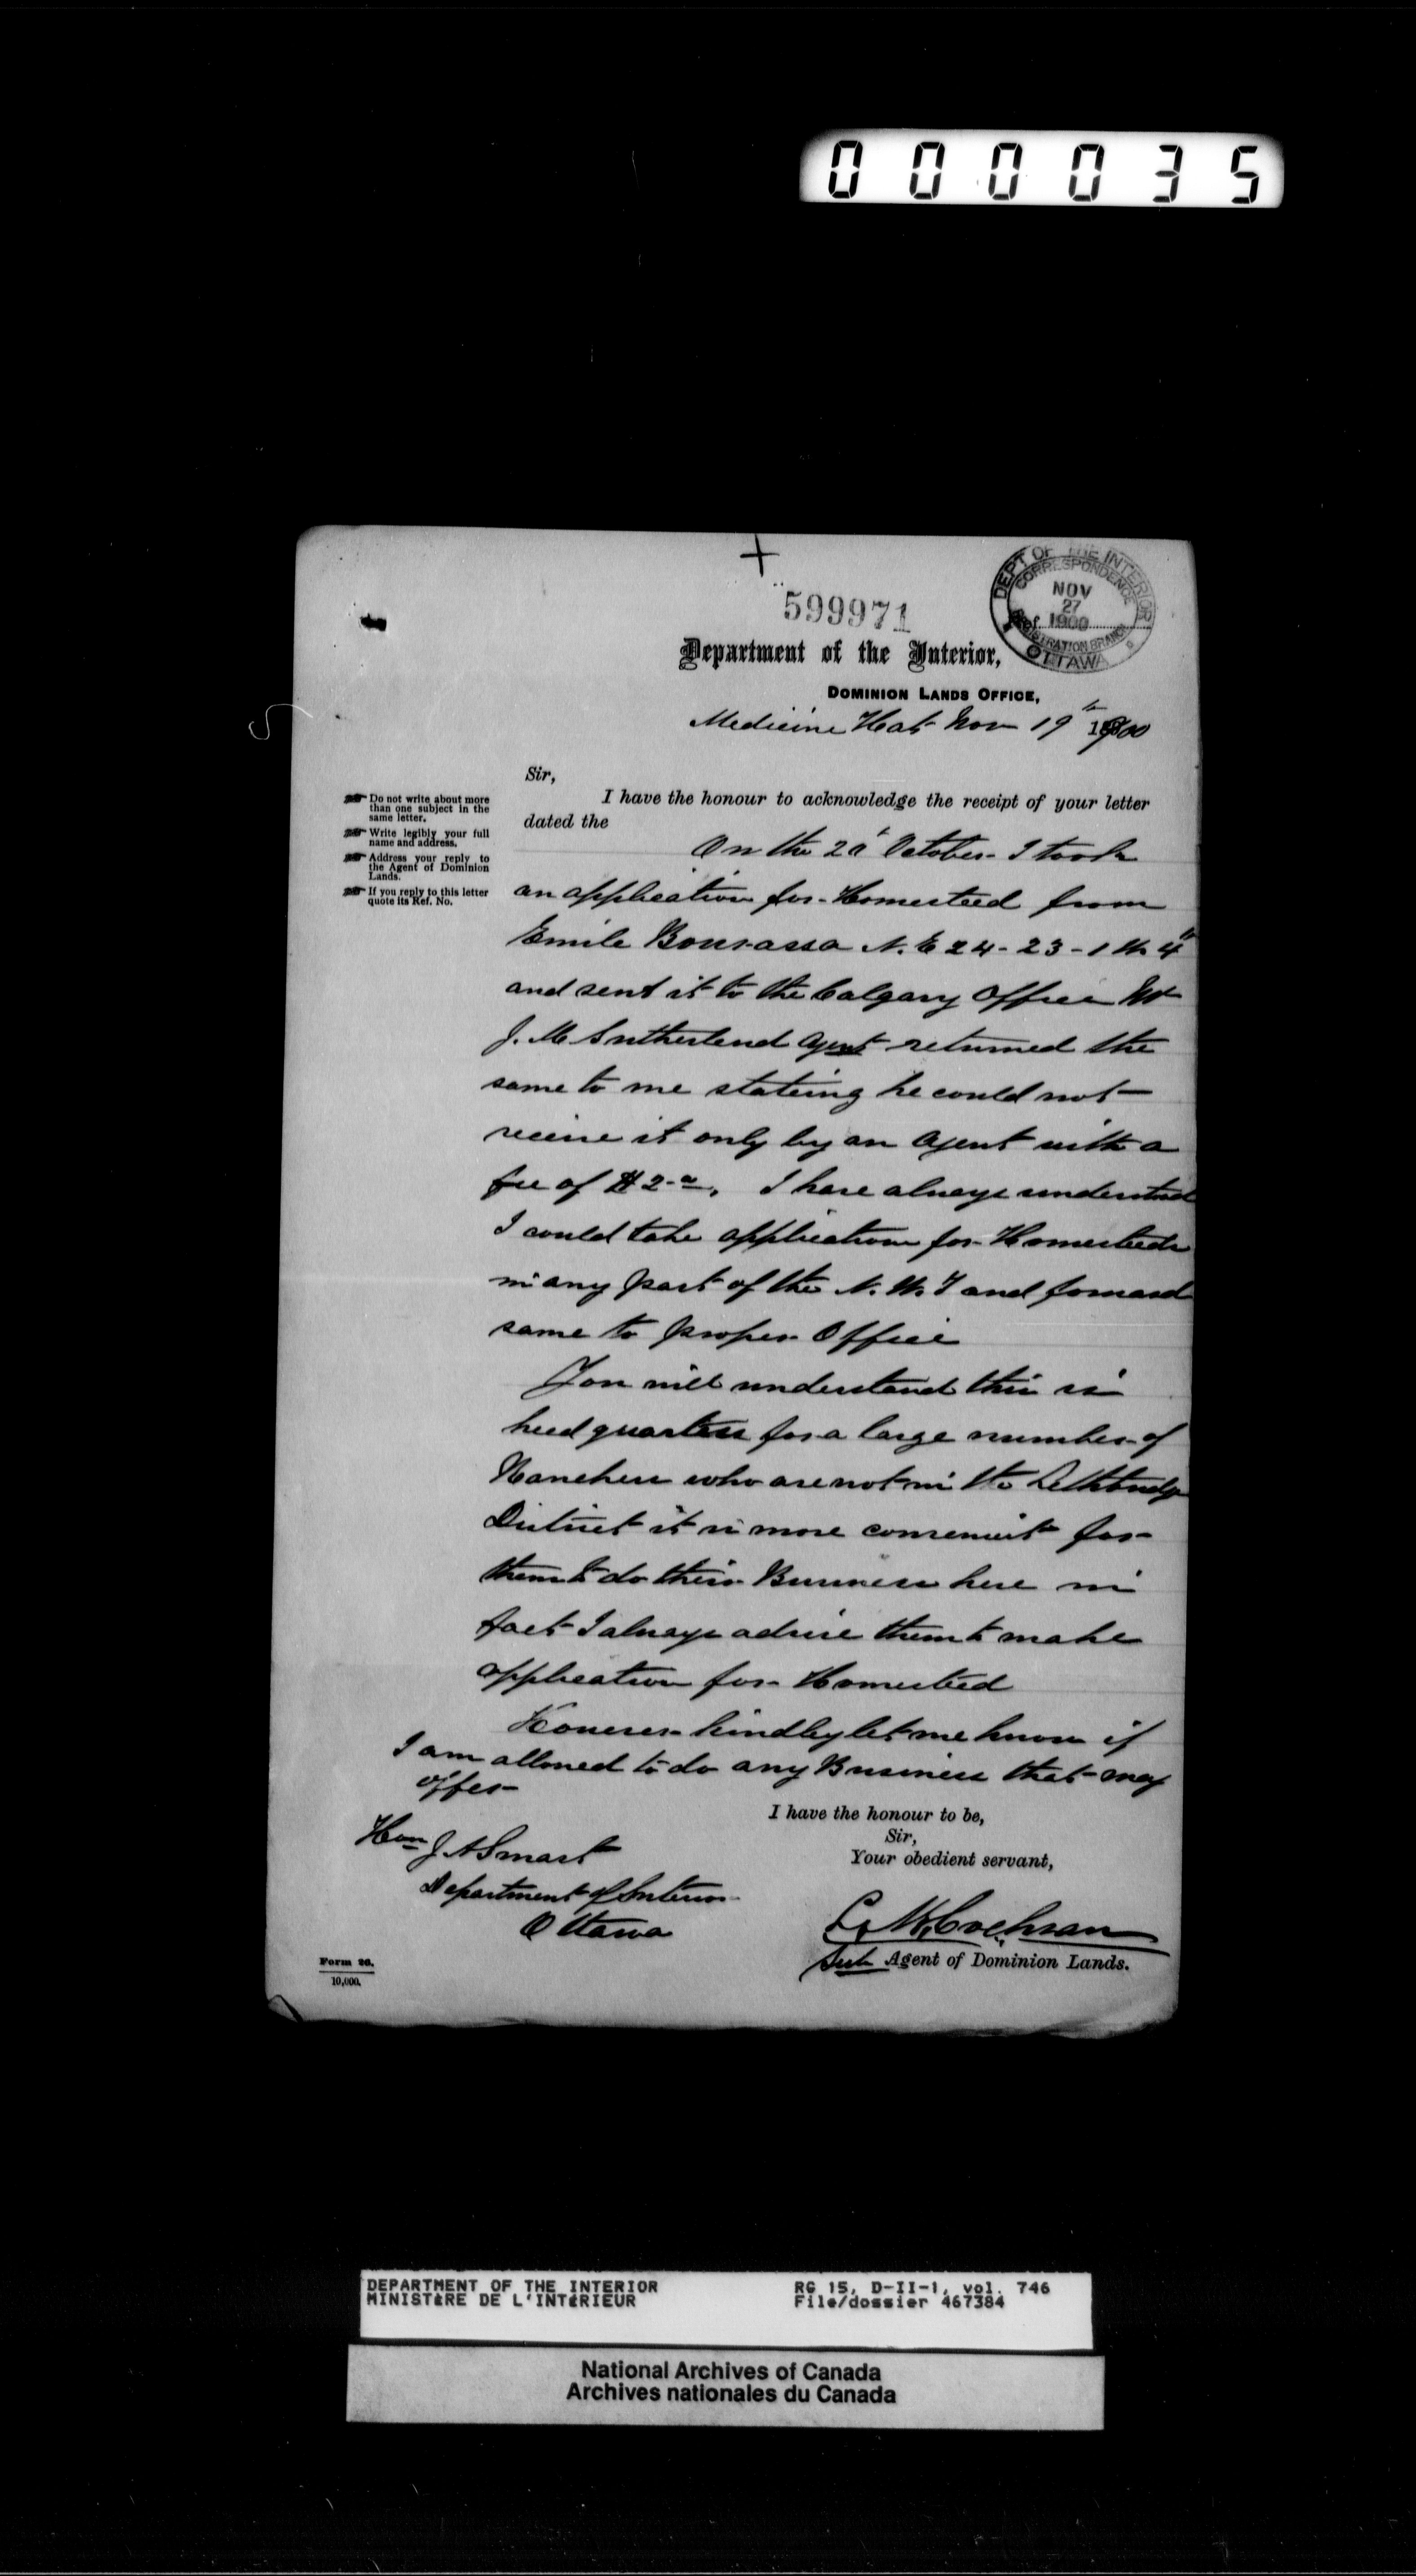 000035
+
599971
DEPT OF THE INTERIOR
CORRESPONDENCE
NOV
27
1900
REGISTRATION BRANCH
OTTAWA
Department of the Interior,
DOMINION LANDS OFFICE,
Medicine Hat Nov 19th 1900
Sir,
I have the honour to acknowledge the receipt of your letter
dated the
Do not write about more
than one subject in the
same letter.
Write legibly your full
name and address.
Address your reply to
the Agent of Dominion
Lands.
If you reply to this letter
quote its Ref. No.
On the October I took
an application for Homesteed from
Emile Bourassa N.E 24-23-1 W. 4th
and sent it to the Calgary Office
J. M. Sutherland Agent returned the
same to me stateing he could not
receive it only by an Agent with a
fee of $2.00. I have always understood
I could take application for Homesteeds
in any part of the N.W.T and forward
same to proper Office
You will understand this is
heed quarters for a large number of
Ranchers who are not in the Lethbridge
District it is more convenient for
them to do their Business here in
fact I always advise them to make
application for Homesteed
However kindley let me know if
I am allowed to do any Business that may
offer
I have the honour to be,
Sir,
Your obedient servant,
Hon J A Smart
Department of Interior
Ottawa
C. W. Cochran
Sub Agent of Dominion Lands.
Form 26.
10,000.
DEPARTMENT OF THE INTERIOR
MINISTÈRE DE L'INTÉRIEUR
RG 15, D-II-1, vol. 746
File/dossier 467384
National Archives of Canada
Archives nationales du Canada